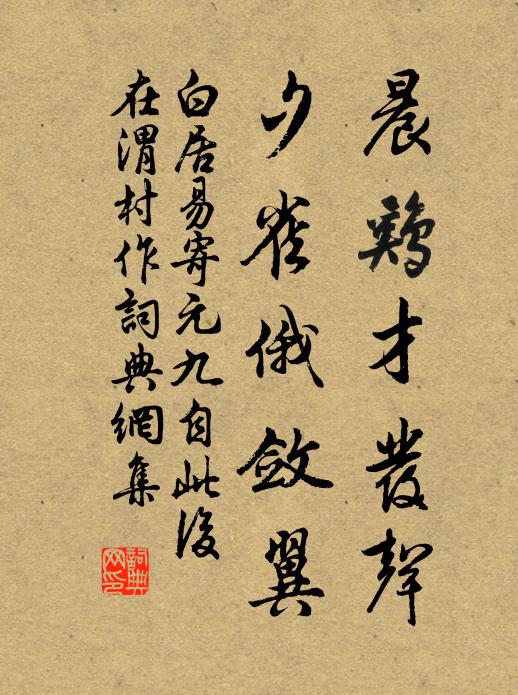 晨鷄才發聲
夕雀俄斂翼
白居易寄元九自此後
在渭村作詞典網集
詞典
网印